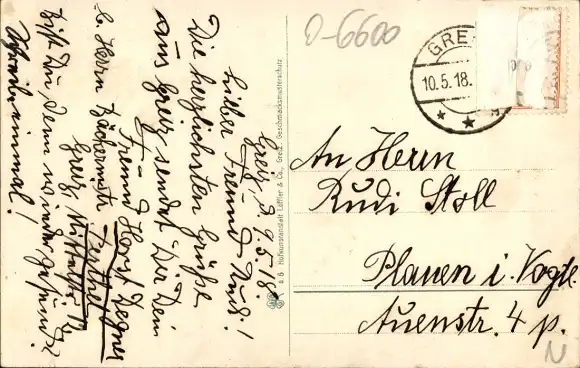 Greiz, d. 9.5.18.
Lieber Freund Rudi!
Die herzlichsten Grüße
aus Greiz sendet Dir Dein
Freund Horst Degner
b. Herrn Bäckermstr.
Greiz,
Bist Du denn wieder gesund?
Schreib einmal!
a G Hofkunstanstalt Löffler & Co., Greiz. Geschmacksmusterschutz
0-6600
GRE
10.5.18.
An Herrn
Rudi Stoll
Plauen i. Vogtl.
Auenstr. 4 p.
N